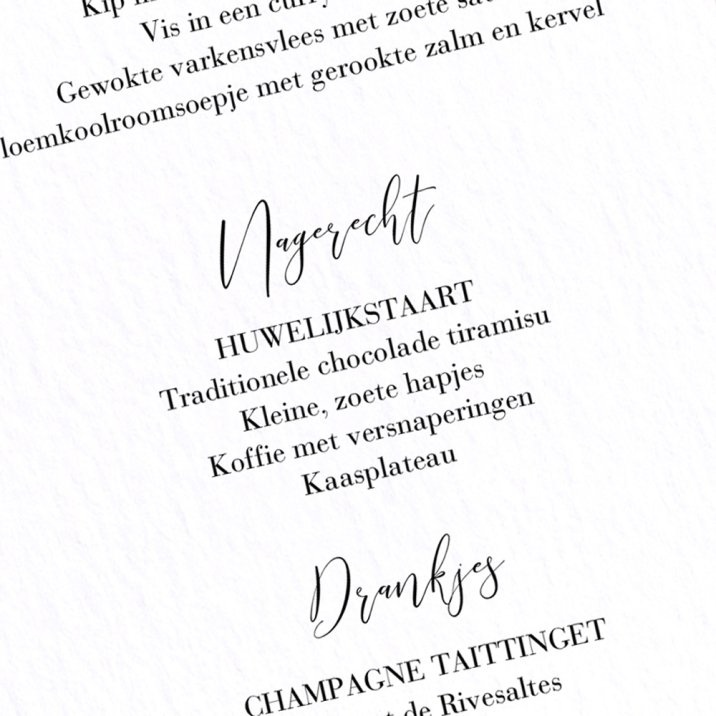 Kip
Vis in een
Gewokte varkensvlees met zoete
loemkoolroomsoepje met gerookte zalm en kervel
Nagerecht
HUWELIJKSTAART
Traditionele chocolade tiramisu
Kleine, zoete hapjes
Koffie met versnaperingen
Kaasplateau
Drankjes
CHAMPAGNE TAITTINGET
de Rivesaltes